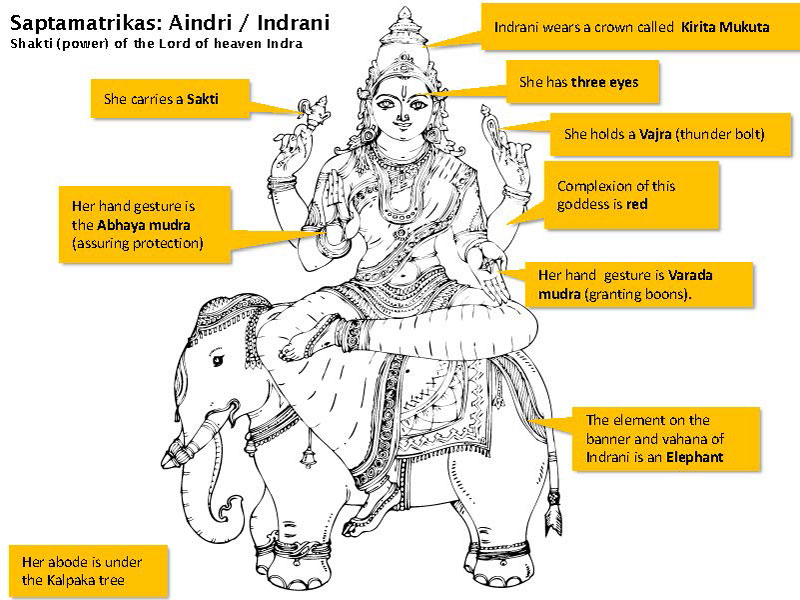 Saptamatrikas: Aindri / Indrani
Shakti (power) of the Lord of heaven Indra
Indrani wears a crown called Kirita Mukuta
She has three eyes
She carries a Sakti
She holds a Vajra (thunder bolt)
Complexion of this
goddess is red
Her hand gesture is
the Abhaya mudra
(assuring protection)
Her hand gesture is Varada
mudra (granting boons).
The element on the
banner and vahana of
Indrani is an Elephant
Her abode is under
the Kalpaka tree